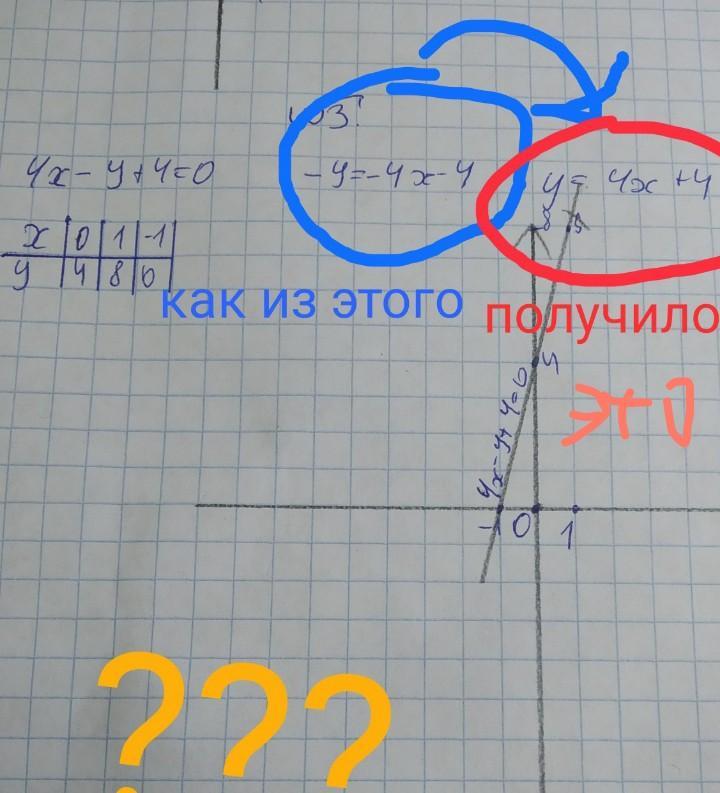 4x-y+4=0
-y=-4x-4
y=4x+4
x 0 1 -1
y 4 8 0
как из этого
получило
это
8
4
4x-y+4=0
-1 0 1
???